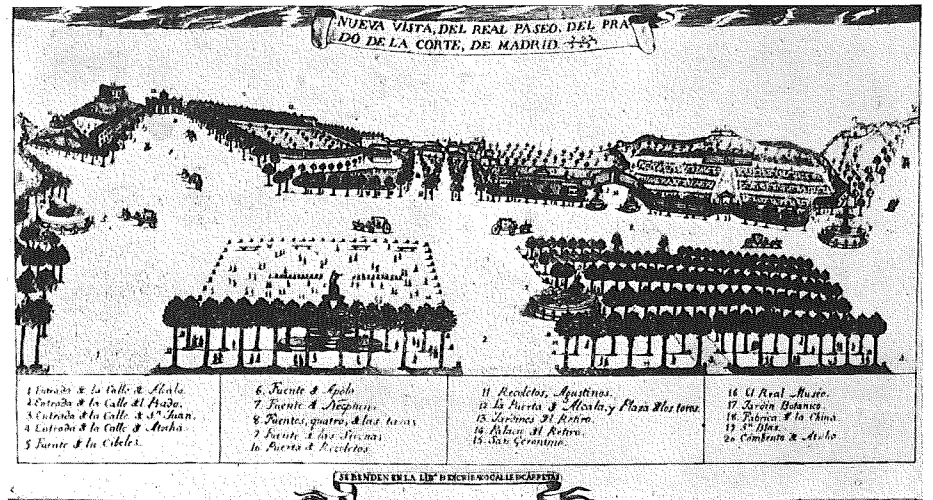 NUEVA VISTA, DEL REAL PASEO, DEL PRA
DO DE LA CORTE, DE MADRID
1 Entrada d la Calle d Alcala.
2 Entrada d la Calle del Prado.
3 Entrada d la Calle d Sn Juan.
4 Entrada d la Calle d Atocha.
5 Fuente d la Cibeles.
6. Fuente d Apolo
7 Fuente d Neptuno.
8 Fuentes, quatro, d las tazas
9 Fuente d las Sirenas
10 Puerta d Recoletos.
11 Recoletos, Agustinos.
12 La Puerta d Alcala, y Plaza d los toros.
13 Jardines del Retiro.
14 Palacio del Retiro.
15 San Geronimo.
16 El Real Museo.
17 Jardin Botanico.
18 Fabrica d la China
19 Sn Blas.
20 Combento d Atocha
SE BENDEN EN LA LIBª DE ESCRIBANO CALLE DE CARRETAS